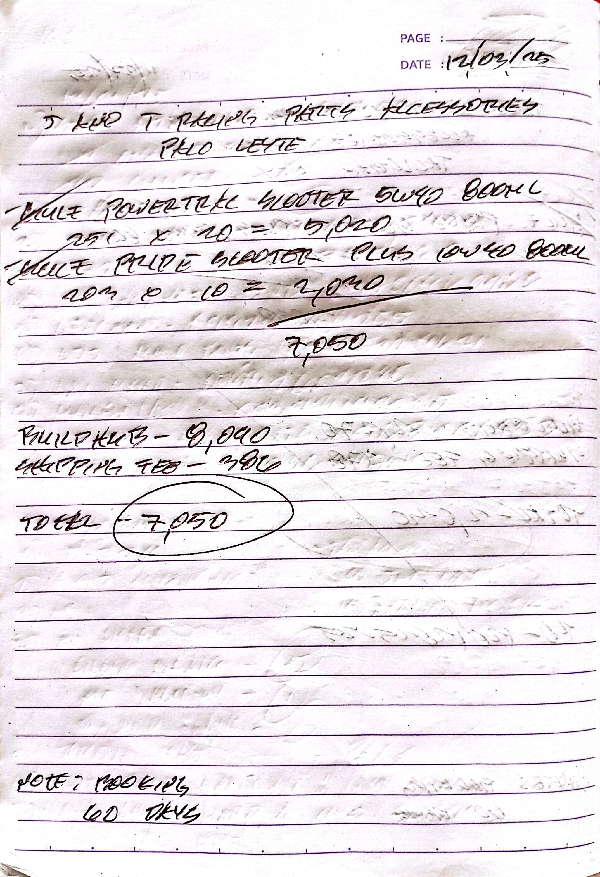 PAGE :
DATE : 12/03/25
J AND T RACING PARTS ACCESSORIES
PALO LEYTE
POWERTRAC SCOOTER 5W40 800ML
251 x 20 = 5,020
PRIDE SCOOTER PLUS 10W40 800ML
203 x 10 = 2,030
7,050
BUILDHUB - 8,090
SHIPPING FEE - 386
TOTAL - 7,050
NOTE : BOOKING
60 DAYS